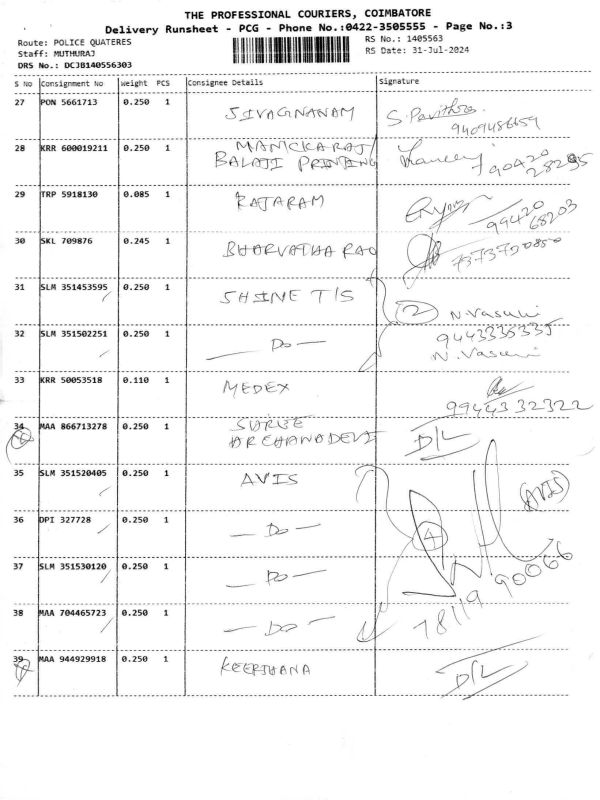 THE PROFESSIONAL COURIERS, COIMBATORE
Delivery Runsheet - PCG - Phone No.:0422-3505555 - Page No.:3
Route: POLICE QUATERES RS No.: 1405563
Staff: MUTHURAJ RS Date: 31-Jul-2024
DRS No.: DCJB140556303
S No Consignment No Weight PCS Consignee Details Signature
27 PON 5661713 0.250 1 SIVAGNANAM S. Pavithra
9409486659
28 KRR 600019211 0.250 1 MANICKARAJ/
BALAJI PRINTING 90420
28295
29 TRP 5918130 0.085 1 RAJARAM 99420
68203
30 SKL 709876 0.245 1 BHARVATHA RAO 7373730850
31 SLM 351453595 0.250 1 SHINE T/S 2 N. Vasuki
32 SLM 351502251 0.250 1 — Do — 9443335335
N. Vasuki
33 KRR 50053518 0.110 1 MEDEX
9944332322
34 MAA 866713278 0.250 1
ARCHANADEVI D/L
35 SLM 351520405 0.250 1 AVIS (AVIS)
36 DPI 327728 0.250 1 — Do — 4
37 SLM 351530120 0.250 1 — Do — 78119 90066
38 MAA 704465723 0.250 1 — Do —
39 MAA 944929918 0.250 1 KEERTHANA D/L